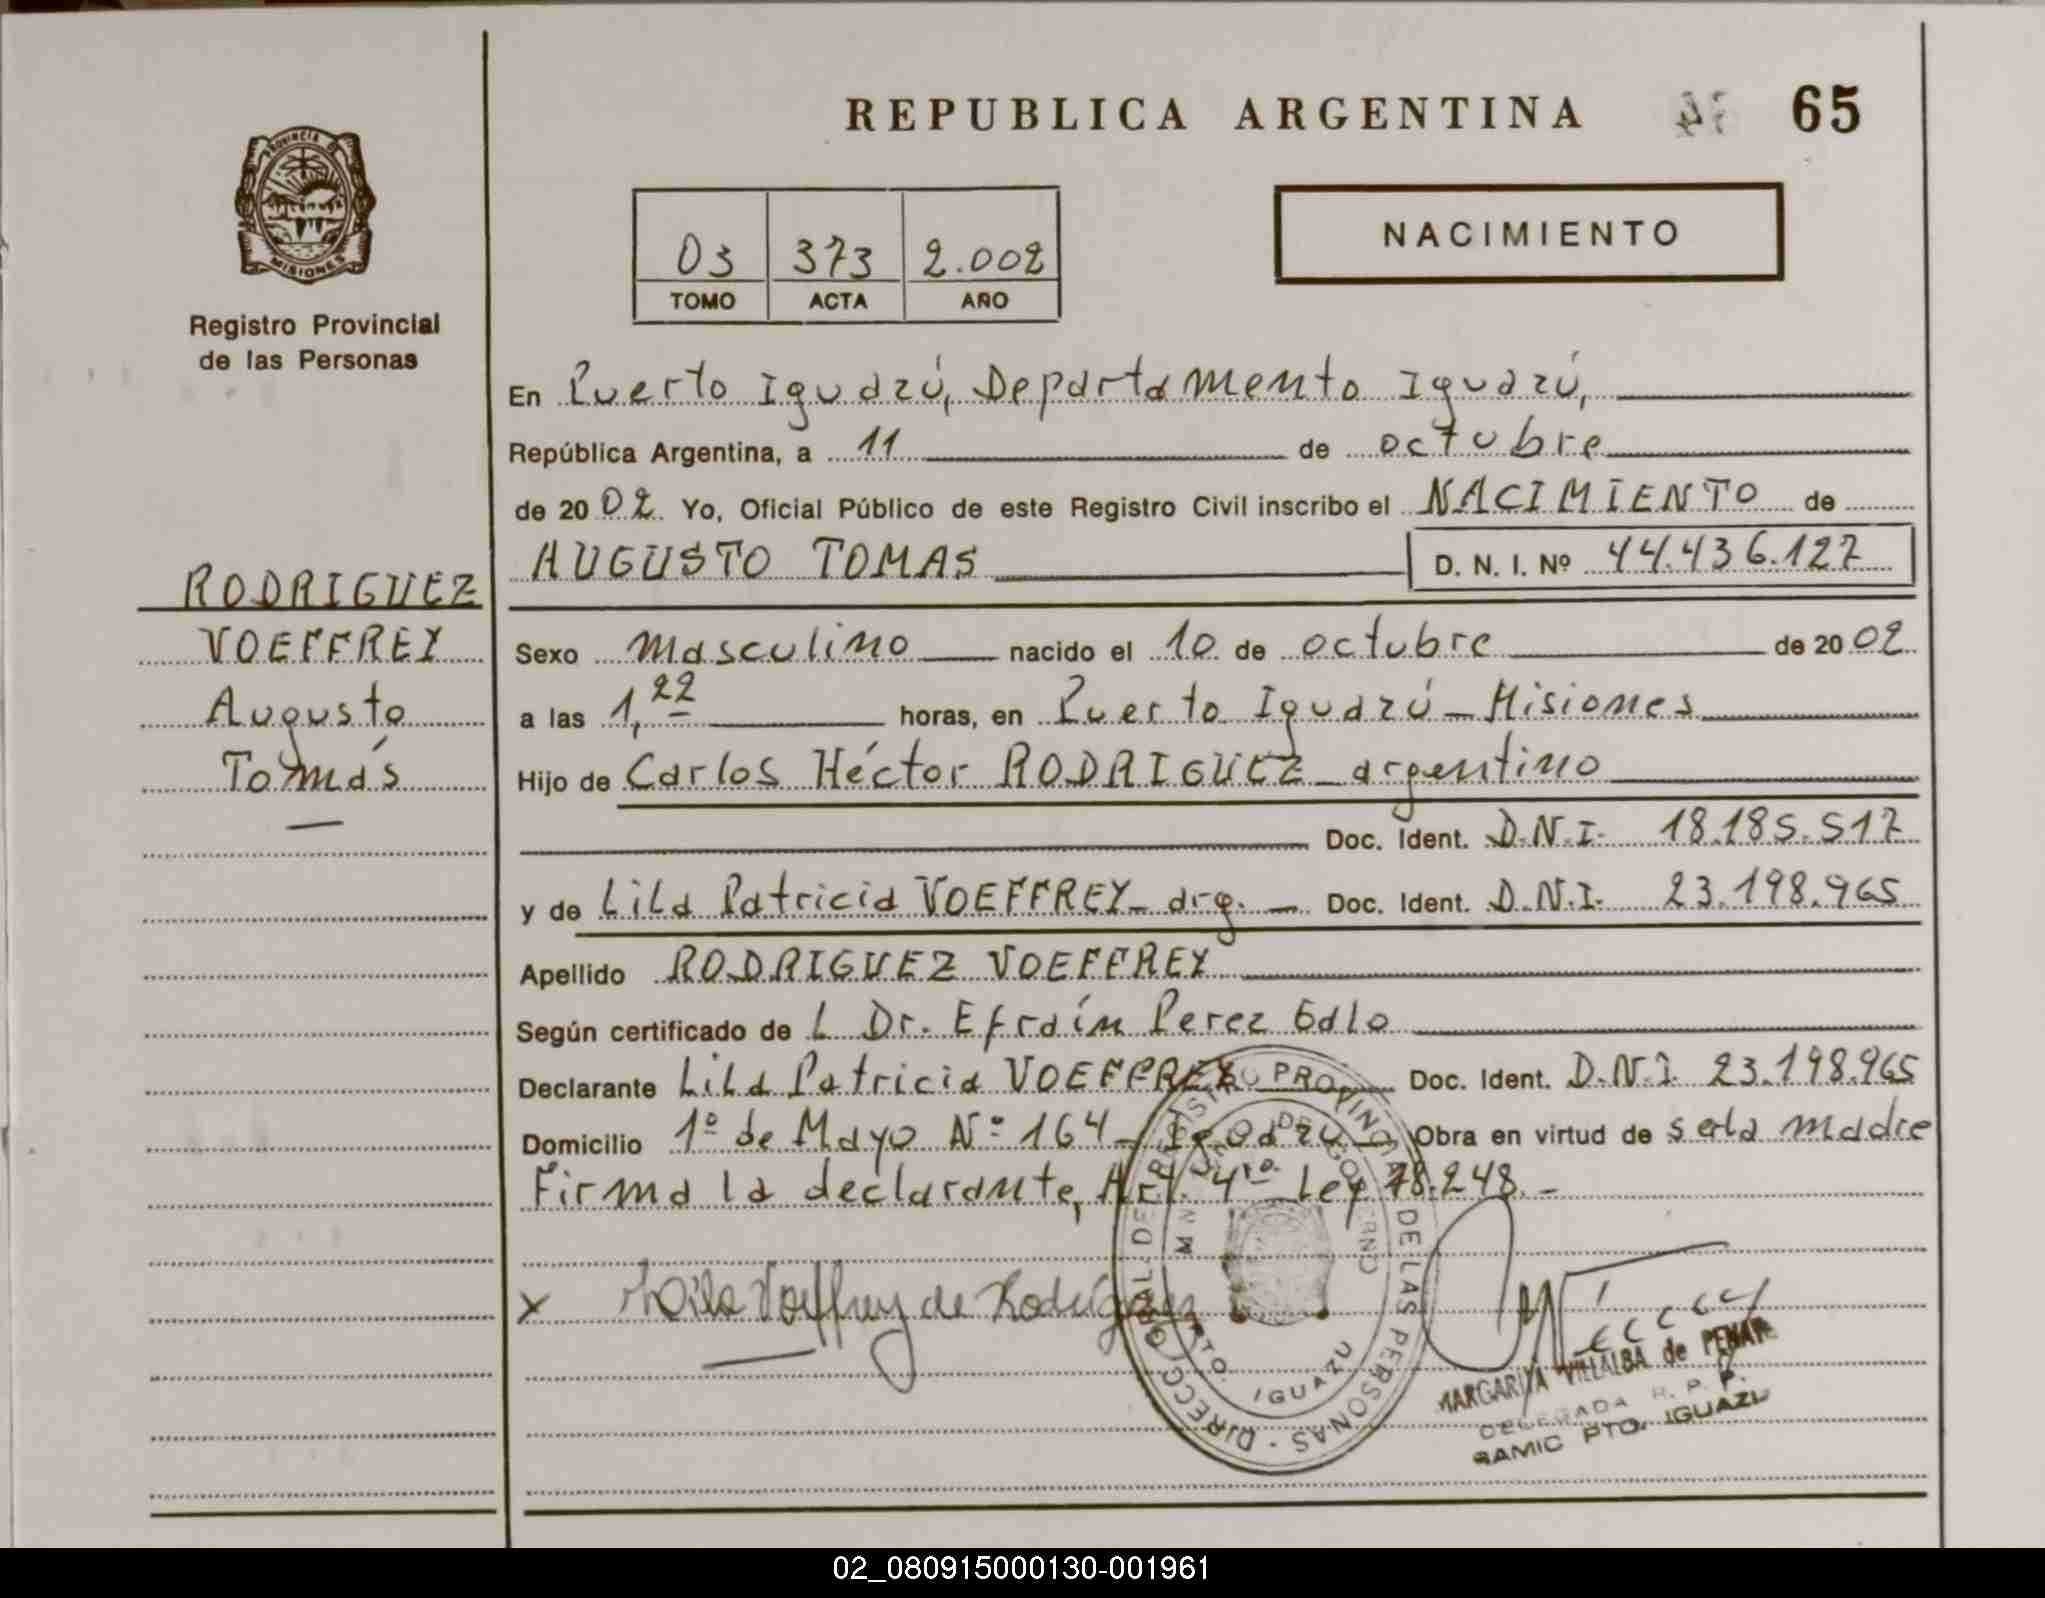 REPUBLICA ARGENTINA 65
PROVINCIA DE
MISIONES
Registro Provincial
de las Personas
03 373 2.002
TOMO ACTA AÑO
NACIMIENTO
En Puerto Iguazú, Departamento Iguazú,
República Argentina, a 11 de octubre
de 2002 Yo, Oficial Público de este Registro Civil inscribo el NACIMIENTO de
AUGUSTO TOMAS D. N. I. Nº 44.436.127
RODRIGUEZ
VOEFFREY
Augusto
Tomás
Sexo masculino nacido el 10 de octubre de 2002
a las 1,22 horas, en Puerto Iguazú - Misiones
Hijo de Carlos Héctor RODRIGUEZ - argentino
Doc. Ident. D.N.I. 18.185.517
y de Lila Patricia VOEFFREY - arg. - Doc. Ident. D.N.I. 23.198.965
Apellido RODRIGUEZ VOEFFREY
Según certificado de L Dr. Efraín Perez
Declarante Lila Patricia VOEFFREY Doc. Ident. D.N.I. 23.198.965
Domicilio 1º de Mayo Nº 164 - Iguazú - Obra en virtud de ser la madre
Firma la declarante, Art. 4to. Ley 18.248. -
x Lila Voeffrey de Rodríguez
DIRECC. GRAL. DE REGISTRO PROVINCIAL DE LAS PERSONAS
PTO IGUAZU
MARGARITA VILLALBA de
DELEGADA R. P. P.
SAMIC PTO. IGUAZU
02_080915000130-001961